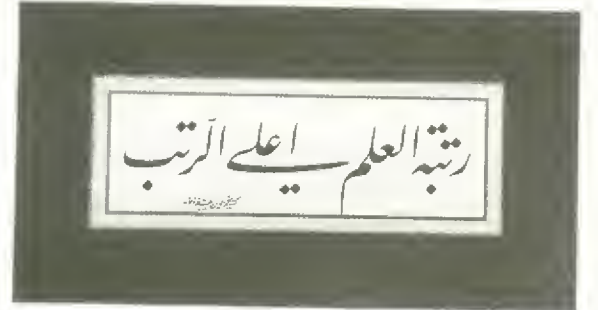 رتبة العلم اعلى الرتب